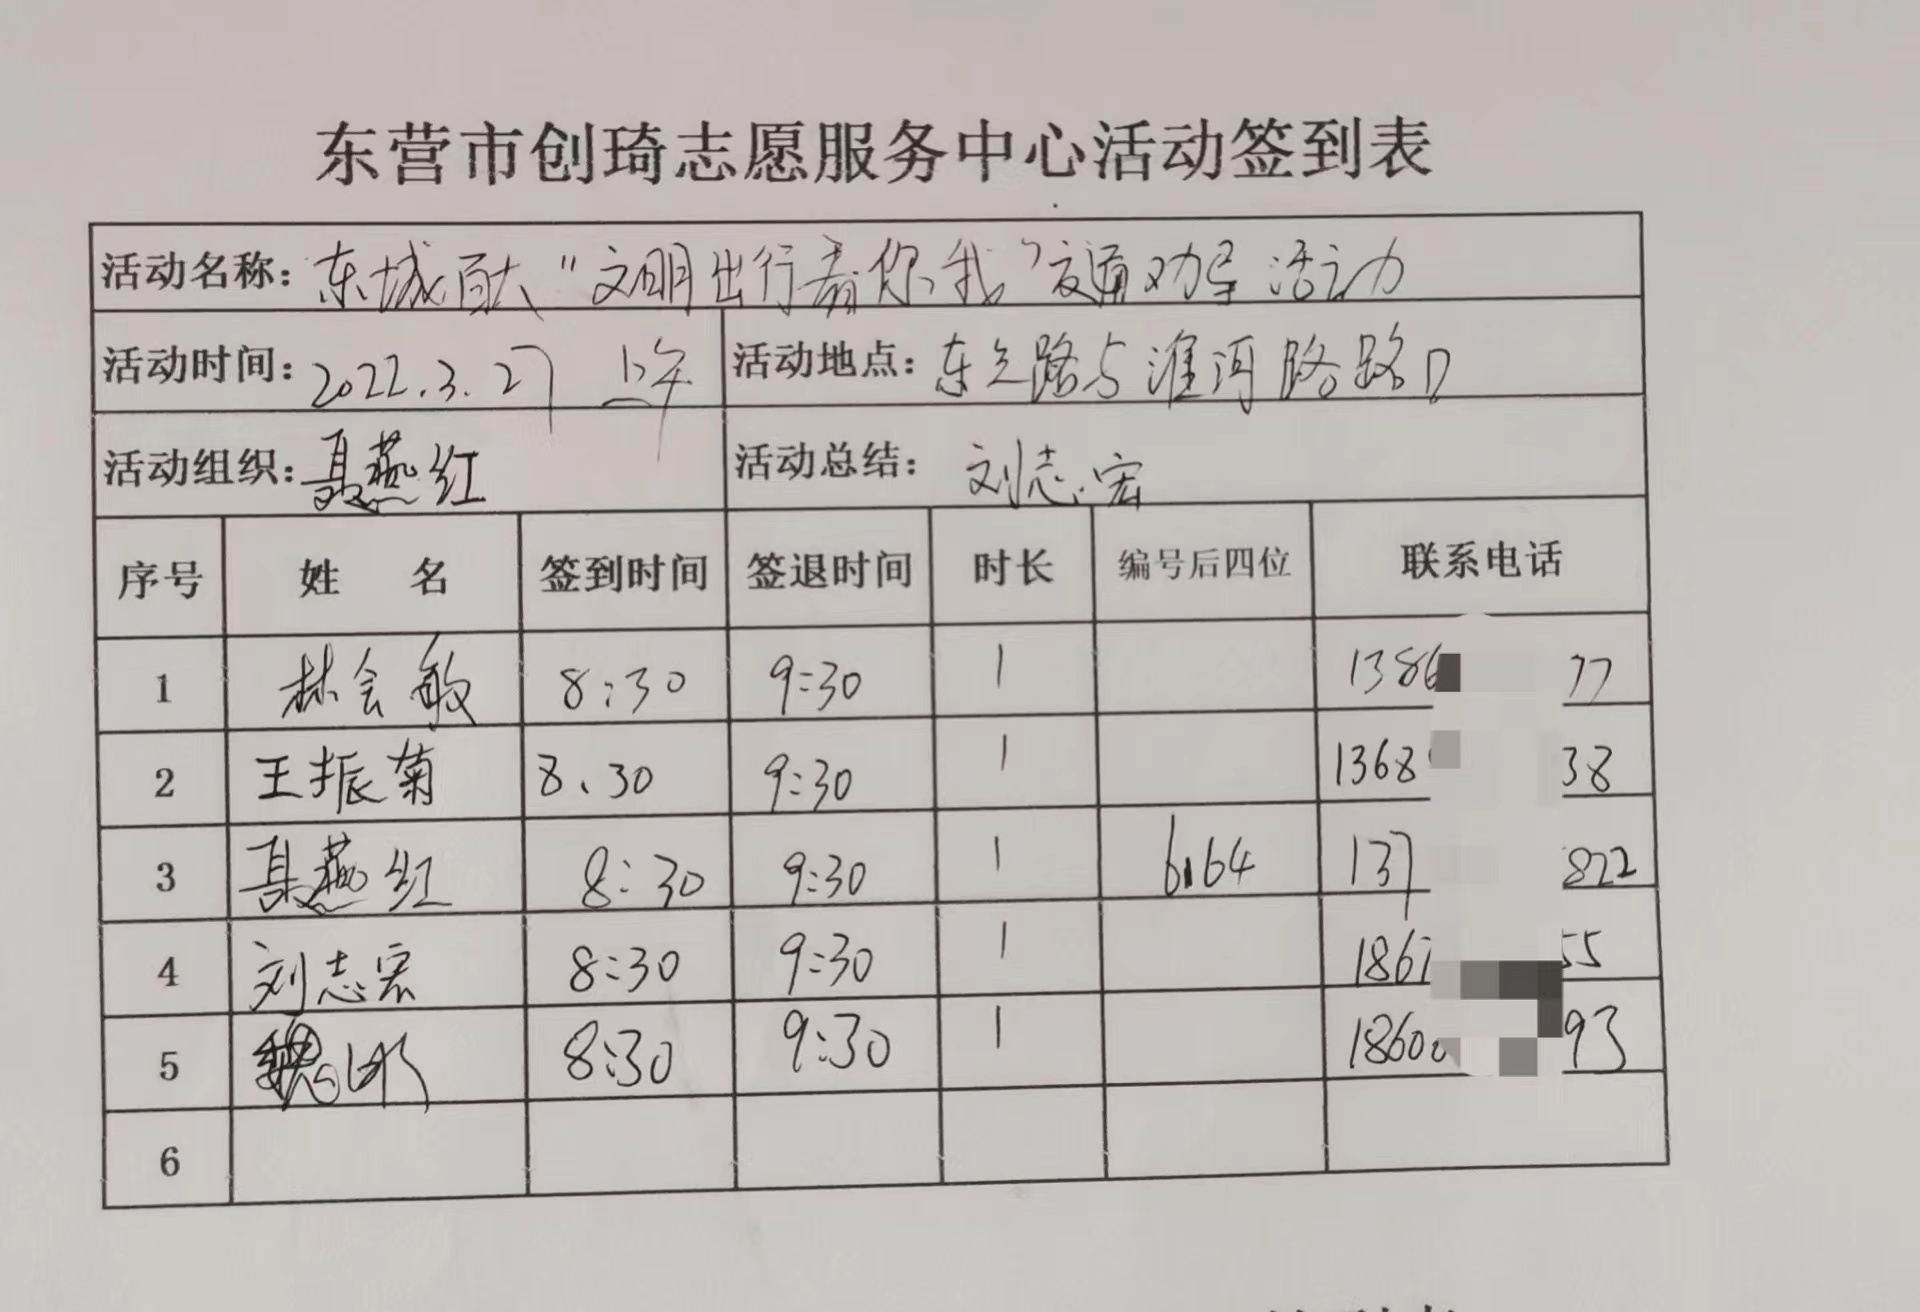 东营市创琦志愿服务中心活动签到表
活动名称: 东城百大“文明出行看你我”交通劝导活动
活动时间: 2022.3.27 上午 活动地点: 东三路与淮河路路口
活动组织: 聂燕红 活动总结: 刘志宏
序号 姓 名 签到时间 签退时间 时长 编号后四位 联系电话
1 林会敏 8:30 9:30 1 1386 77
2 王振菊 8.30 9:30 1 1368 38
3 聂燕红 8:30 9:30 1 6164 137 822
4 刘志宏 8:30 9:30 1 186 55
5 魏 8:30 9:30 1 1860 93
6